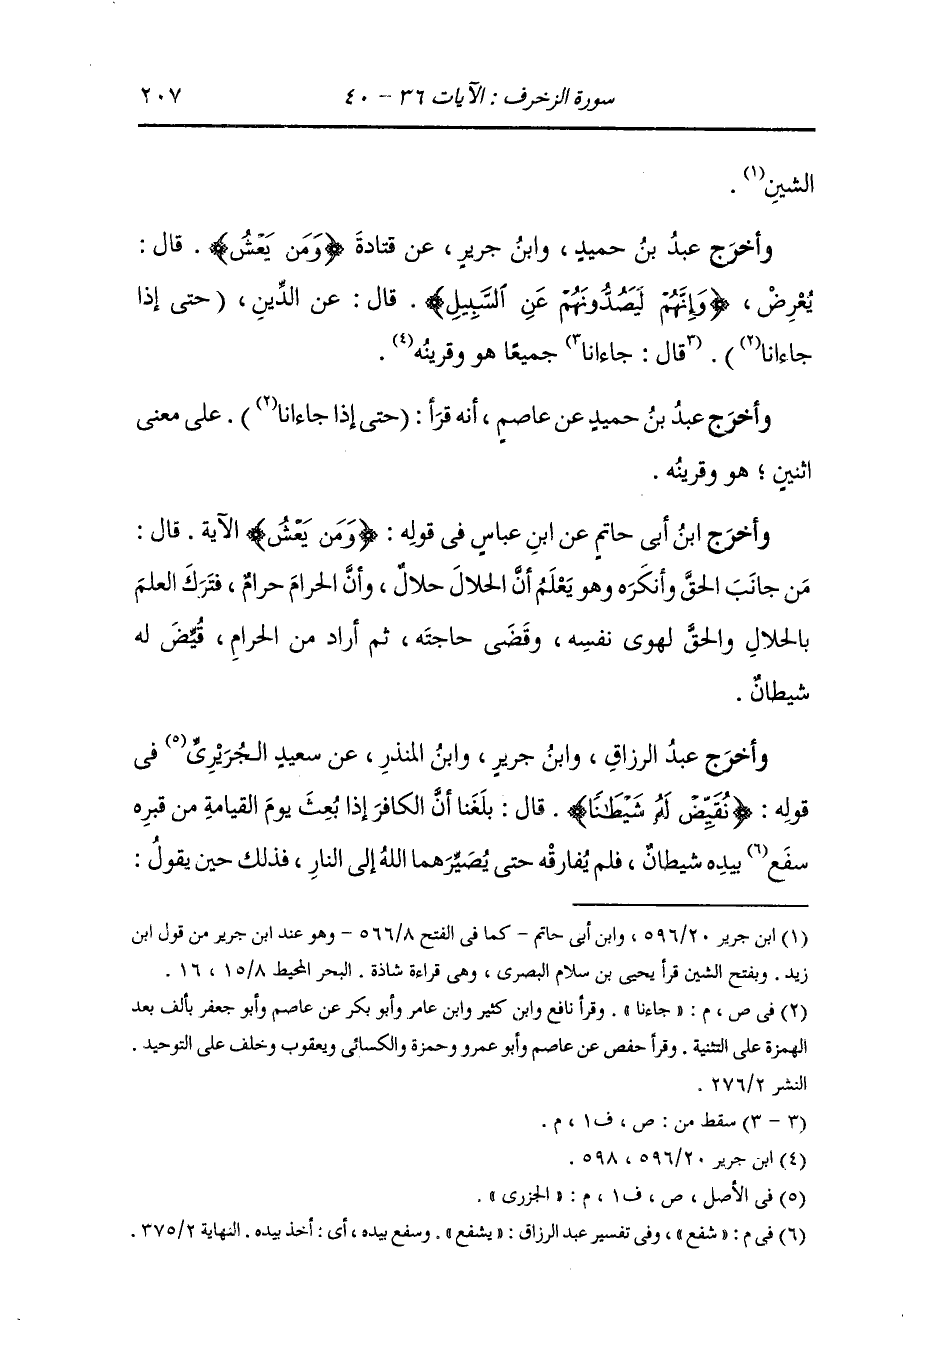 سورة الزخرف : الآيات ٣٦ - ٤٠ ٢٠٧
الشينِ(١) .
وأخرَج عبدُ بنُ حميدٍ ، وابنُ جريرٍ ، عن قتادةَ ﴿وَمَن يَعْشُ﴾ . قال :
يُعْرِضْ ، ﴿وَإِنَّهُمْ لَيَصُدُّونَهُمْ عَنِ ٱلسَّبِيلِ﴾ . قال : عن الدِّينِ ، (حتى إذا
جاءانا(٢)) . (٣قال : جاءانا٣) جميعًا هو وقرينُه(٤) .
وأخرَج عبدُ بنُ حميدٍ عن عاصمٍ ، أنه قرَأ : (حتى إذا جاءانا(٢)) . على معنى
اثنينِ ؛ هو وقرينُه .
وأخرَج ابنُ أبى حاتمٍ عن ابنِ عباسٍ فى قولِه : ﴿وَمَن يَعْشُ﴾ الآية . قال :
مَن جانَبَ الحقَّ وأنكَرَه وهو يَعْلَمُ أنَّ الحلالَ حلالٌ ، وأنَّ الحرامَ حرامٌ ، فتَرَكَ العلمَ
بالحلالِ والحقَّ لهوى نفسِه ، وقَضَى حاجتَه ، ثم أراد من الحرامِ ، قُيِّضَ له
شيطانٌ .
وأخرَج عبدُ الرزاقِ ، وابنُ جريرٍ ، وابنُ المنذرِ ، عن سعيدٍ الجُرَيْرِىِّ(٥) فى
قولِه : ﴿نُقَيِّضْ لَهُۥ شَيْطَٰنًا﴾ . قال : بلَغَنا أنَّ الكافرَ إذا بُعِثَ يومَ القيامةِ من قبرِه
سفَع(٦) بيدِه شيطانٌ ، فلم يُفارقْه حتى يُصَيِّرَهما اللهُ إلى النارِ ، فذلك حين يقولُ :
(١) ابن جرير ٥٩٦/٢٠ ، وابن أبى حاتم - كما فى الفتح ٥٦٦/٨ - وهو عند ابن جرير من قول ابن
زيد . وبفتح الشين قرأ يحيى بن سلام البصرى ، وهى قراءة شاذة . البحر المحيط ١٥/٨ ، ١٦ .
(٢) فى ص ، م : « جاءنا » . وقرأ نافع وابن كثير وابن عامر وأبو بكر عن عاصم وأبو جعفر بألف بعد
الهمزة على التثنية . وقرأ حفص عن عاصم وأبو عمرو وحمزة والكسائى ويعقوب وخلف على التوحيد .
النشر ٢٧٦/٢ .
(٣ - ٣) سقط من : ص ، ف١ ، م .
(٤) ابن جرير ٥٩٦/٢٠ ، ٥٩٨ .
(٥) فى الأصل ، ص ، ف١ ، م : « الجزرى » .
(٦) فى م : « شفع » ، وفى تفسير عبد الرزاق : « يشفع » . وسفع بيده ، أى : أخذ بيده . النهاية ٣٧٥/٢ .